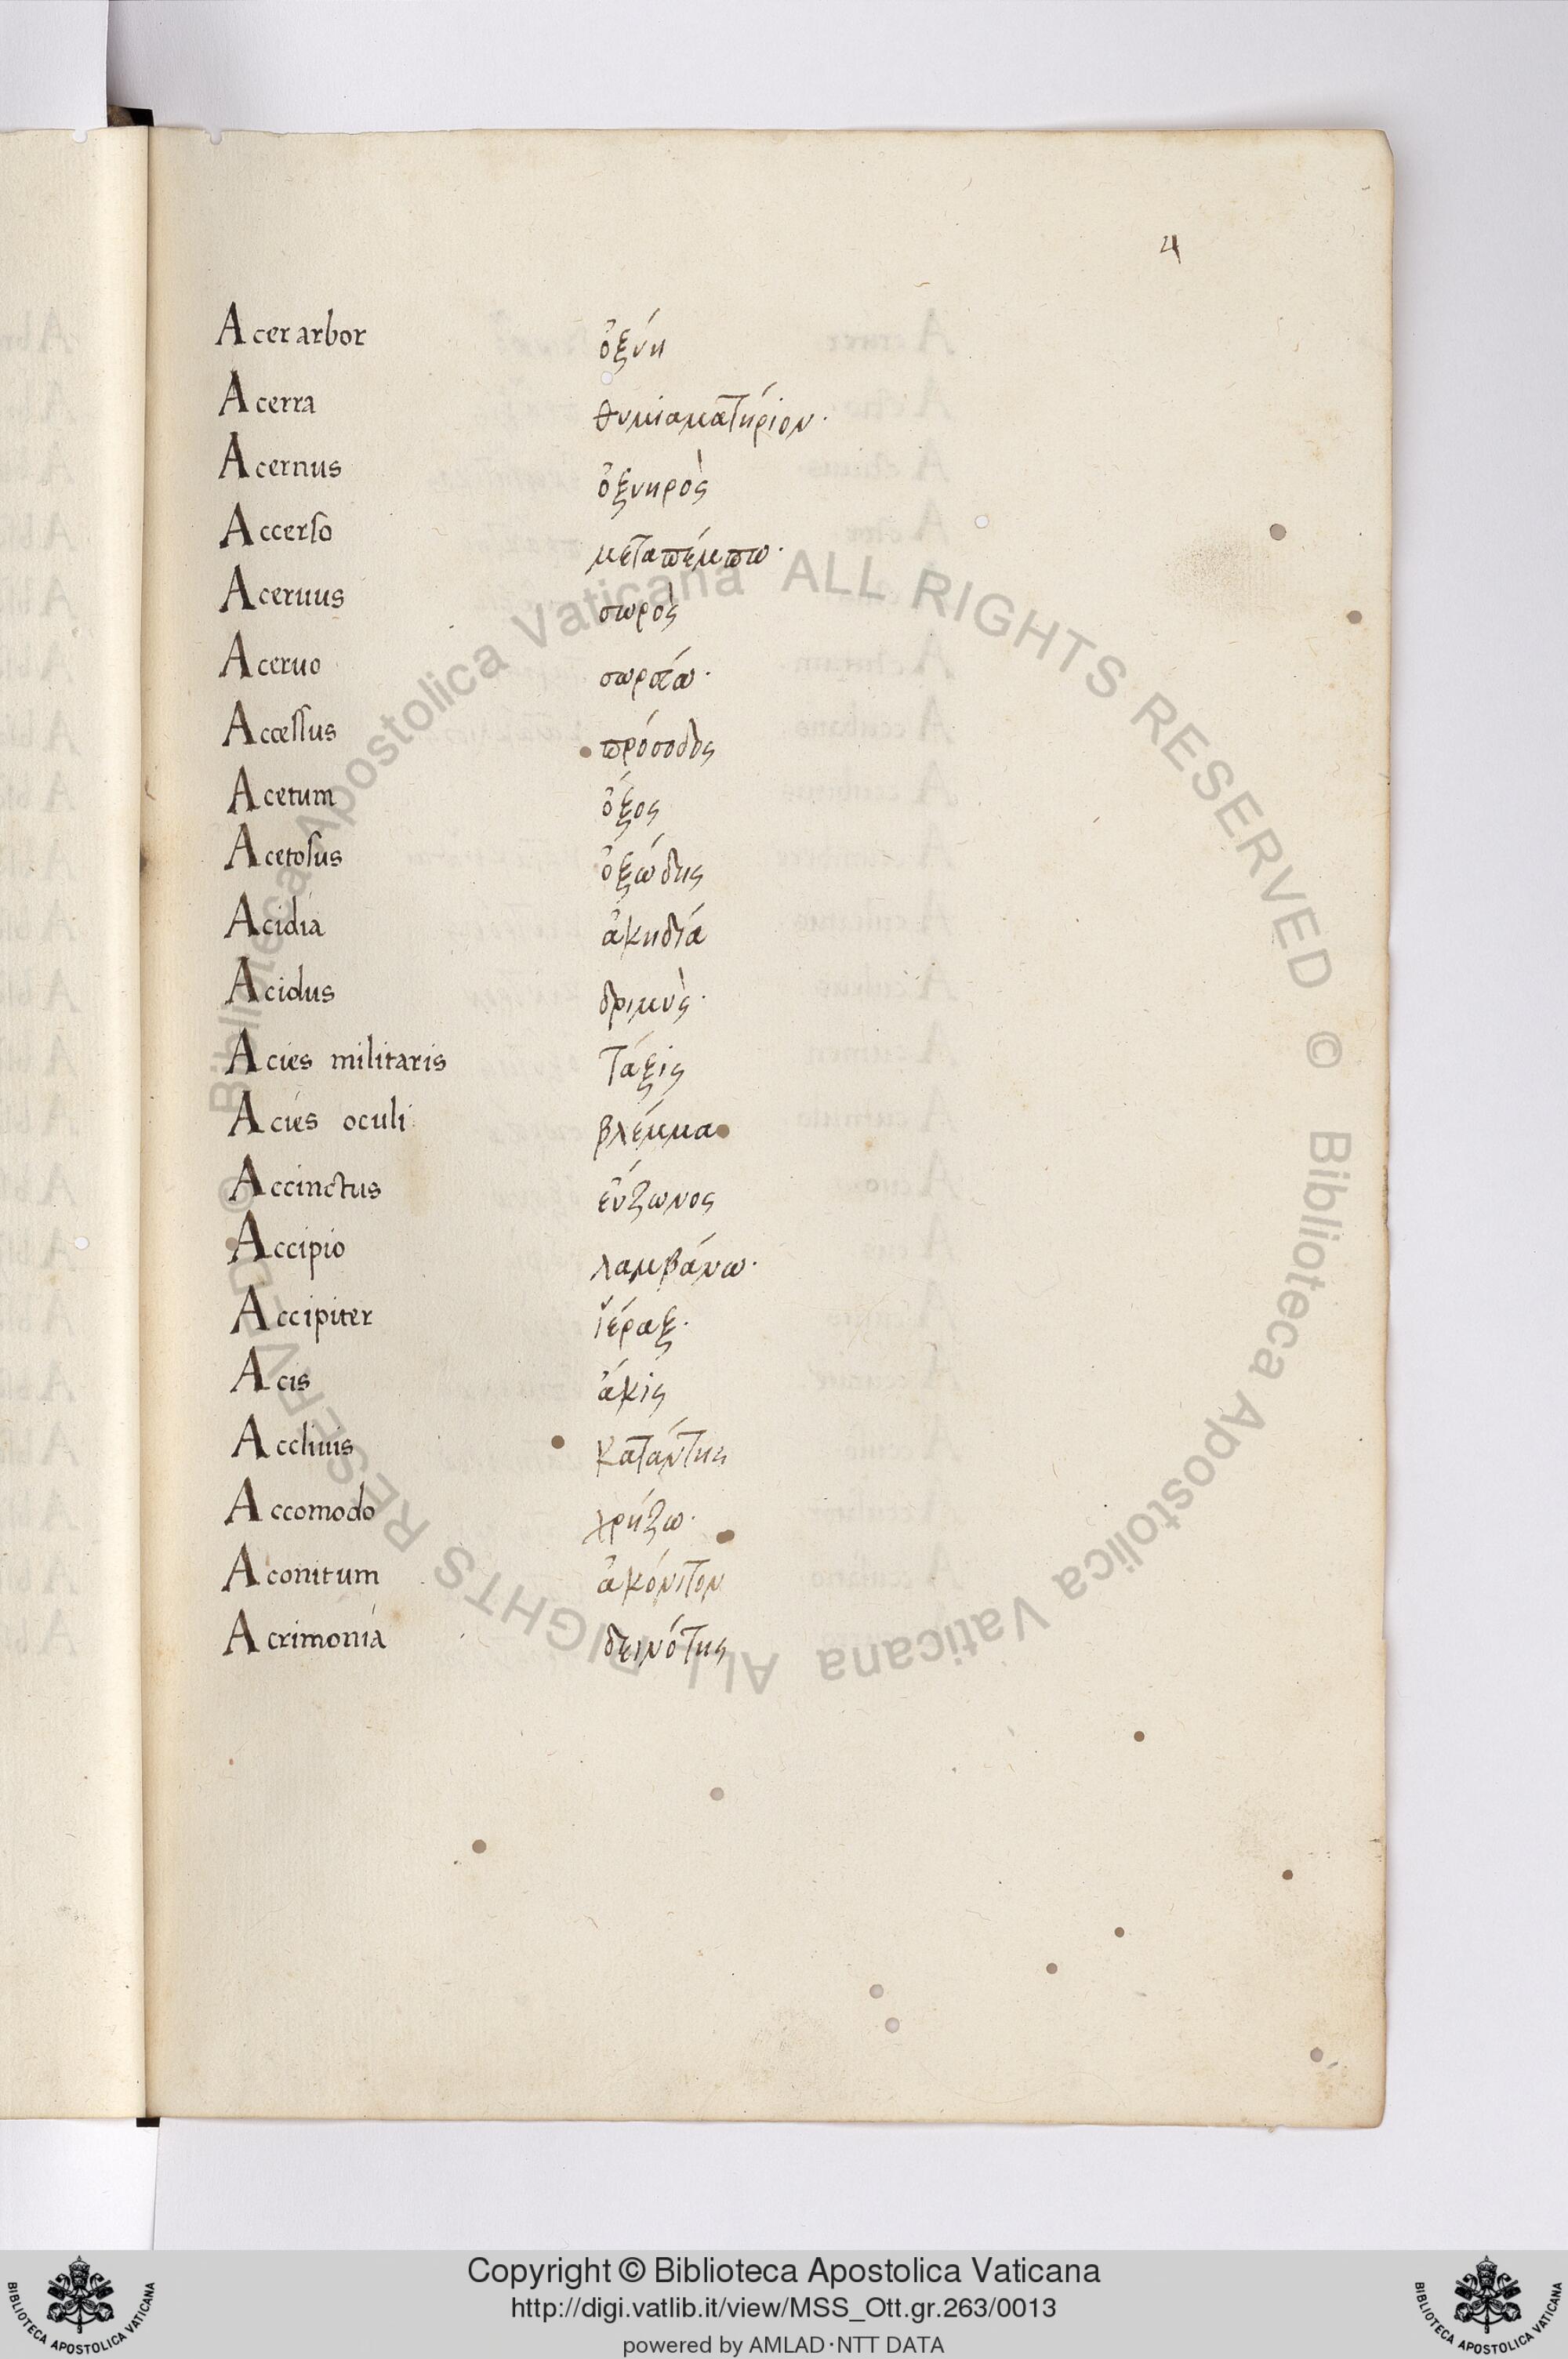 4
Acer arbor ὀξύη
Acerra θυμιαματήριον·
Acernus ὀξυηρὸς
Accerſo μεταπέμπω·
Aceruus σωρὸς
Aceruo
Acceſſus πρόσοδος
Acetum ὄξος
Acetoſus ὀξώδης
Acidia ἀκηδία
Acidus δριμὺς·
Acies militaris τάξις
Acies oculi βλέμμα
Accinctus εὔζωνος
Accipio λαμβάνω·
Accipiter ἱέραξ·
Acis ἄκις
Accliuis κατάντης
Accomodo χρήζω·
Aconitum ἀκόνιτον
Acrimonia δεινότης
© Biblioteca Apostolica Vaticana ALL RIGHTS RESERVED © Biblioteca Apostolica Vaticana ALL RIGHTS RESERVED
Copyright © Biblioteca Apostolica Vaticana
http://digi.vatlib.it/view/MSS_Ott.gr.263/0013
powered by AMLAD·NTT DATA
BIBLIOTECA APOSTOLICA VATICANA
BIBLIOTECA APOSTOLICA VATICANA